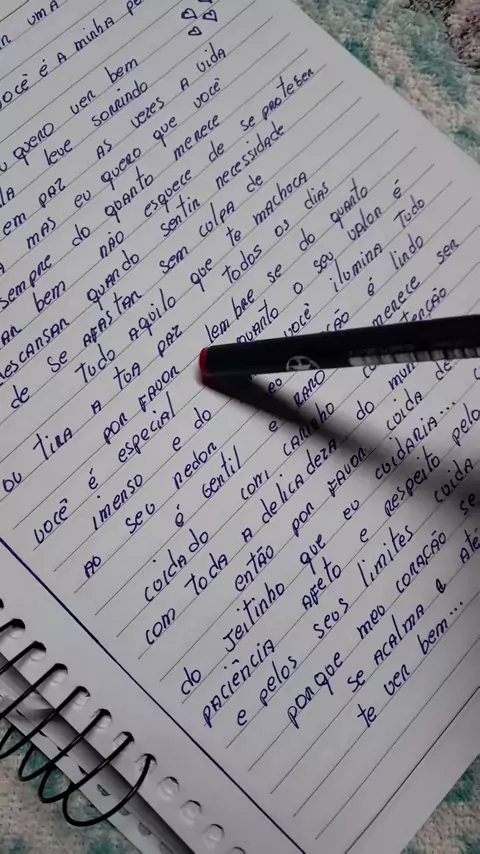 UMA
você é A minha
quero ver bem
leve sorrindo
em paz As vezes A vida
mas eu quero que você
sempre do quanto merece
bem não esquece de se proteger
descansar quando sentir necessidade
de se AFAStAr sem culpa de
tudo Aquilo que te machoca
ou tira A tua paz todos os dias
por FAVOR lembre se do quanto
você é especial quanto o seu valor é
imenso e do você ilumina tudo
Ao seu redor é lindo
é gentil e RARO merece ser
cuidado com carinho
com toda A delicadeza do
então por FAVOR cuida
do jeitinho que eu cuidaria...
paciência AFeto e respeito
e pelos seus limites cuida
porque meu coração
se AcAlma
te ver bem...